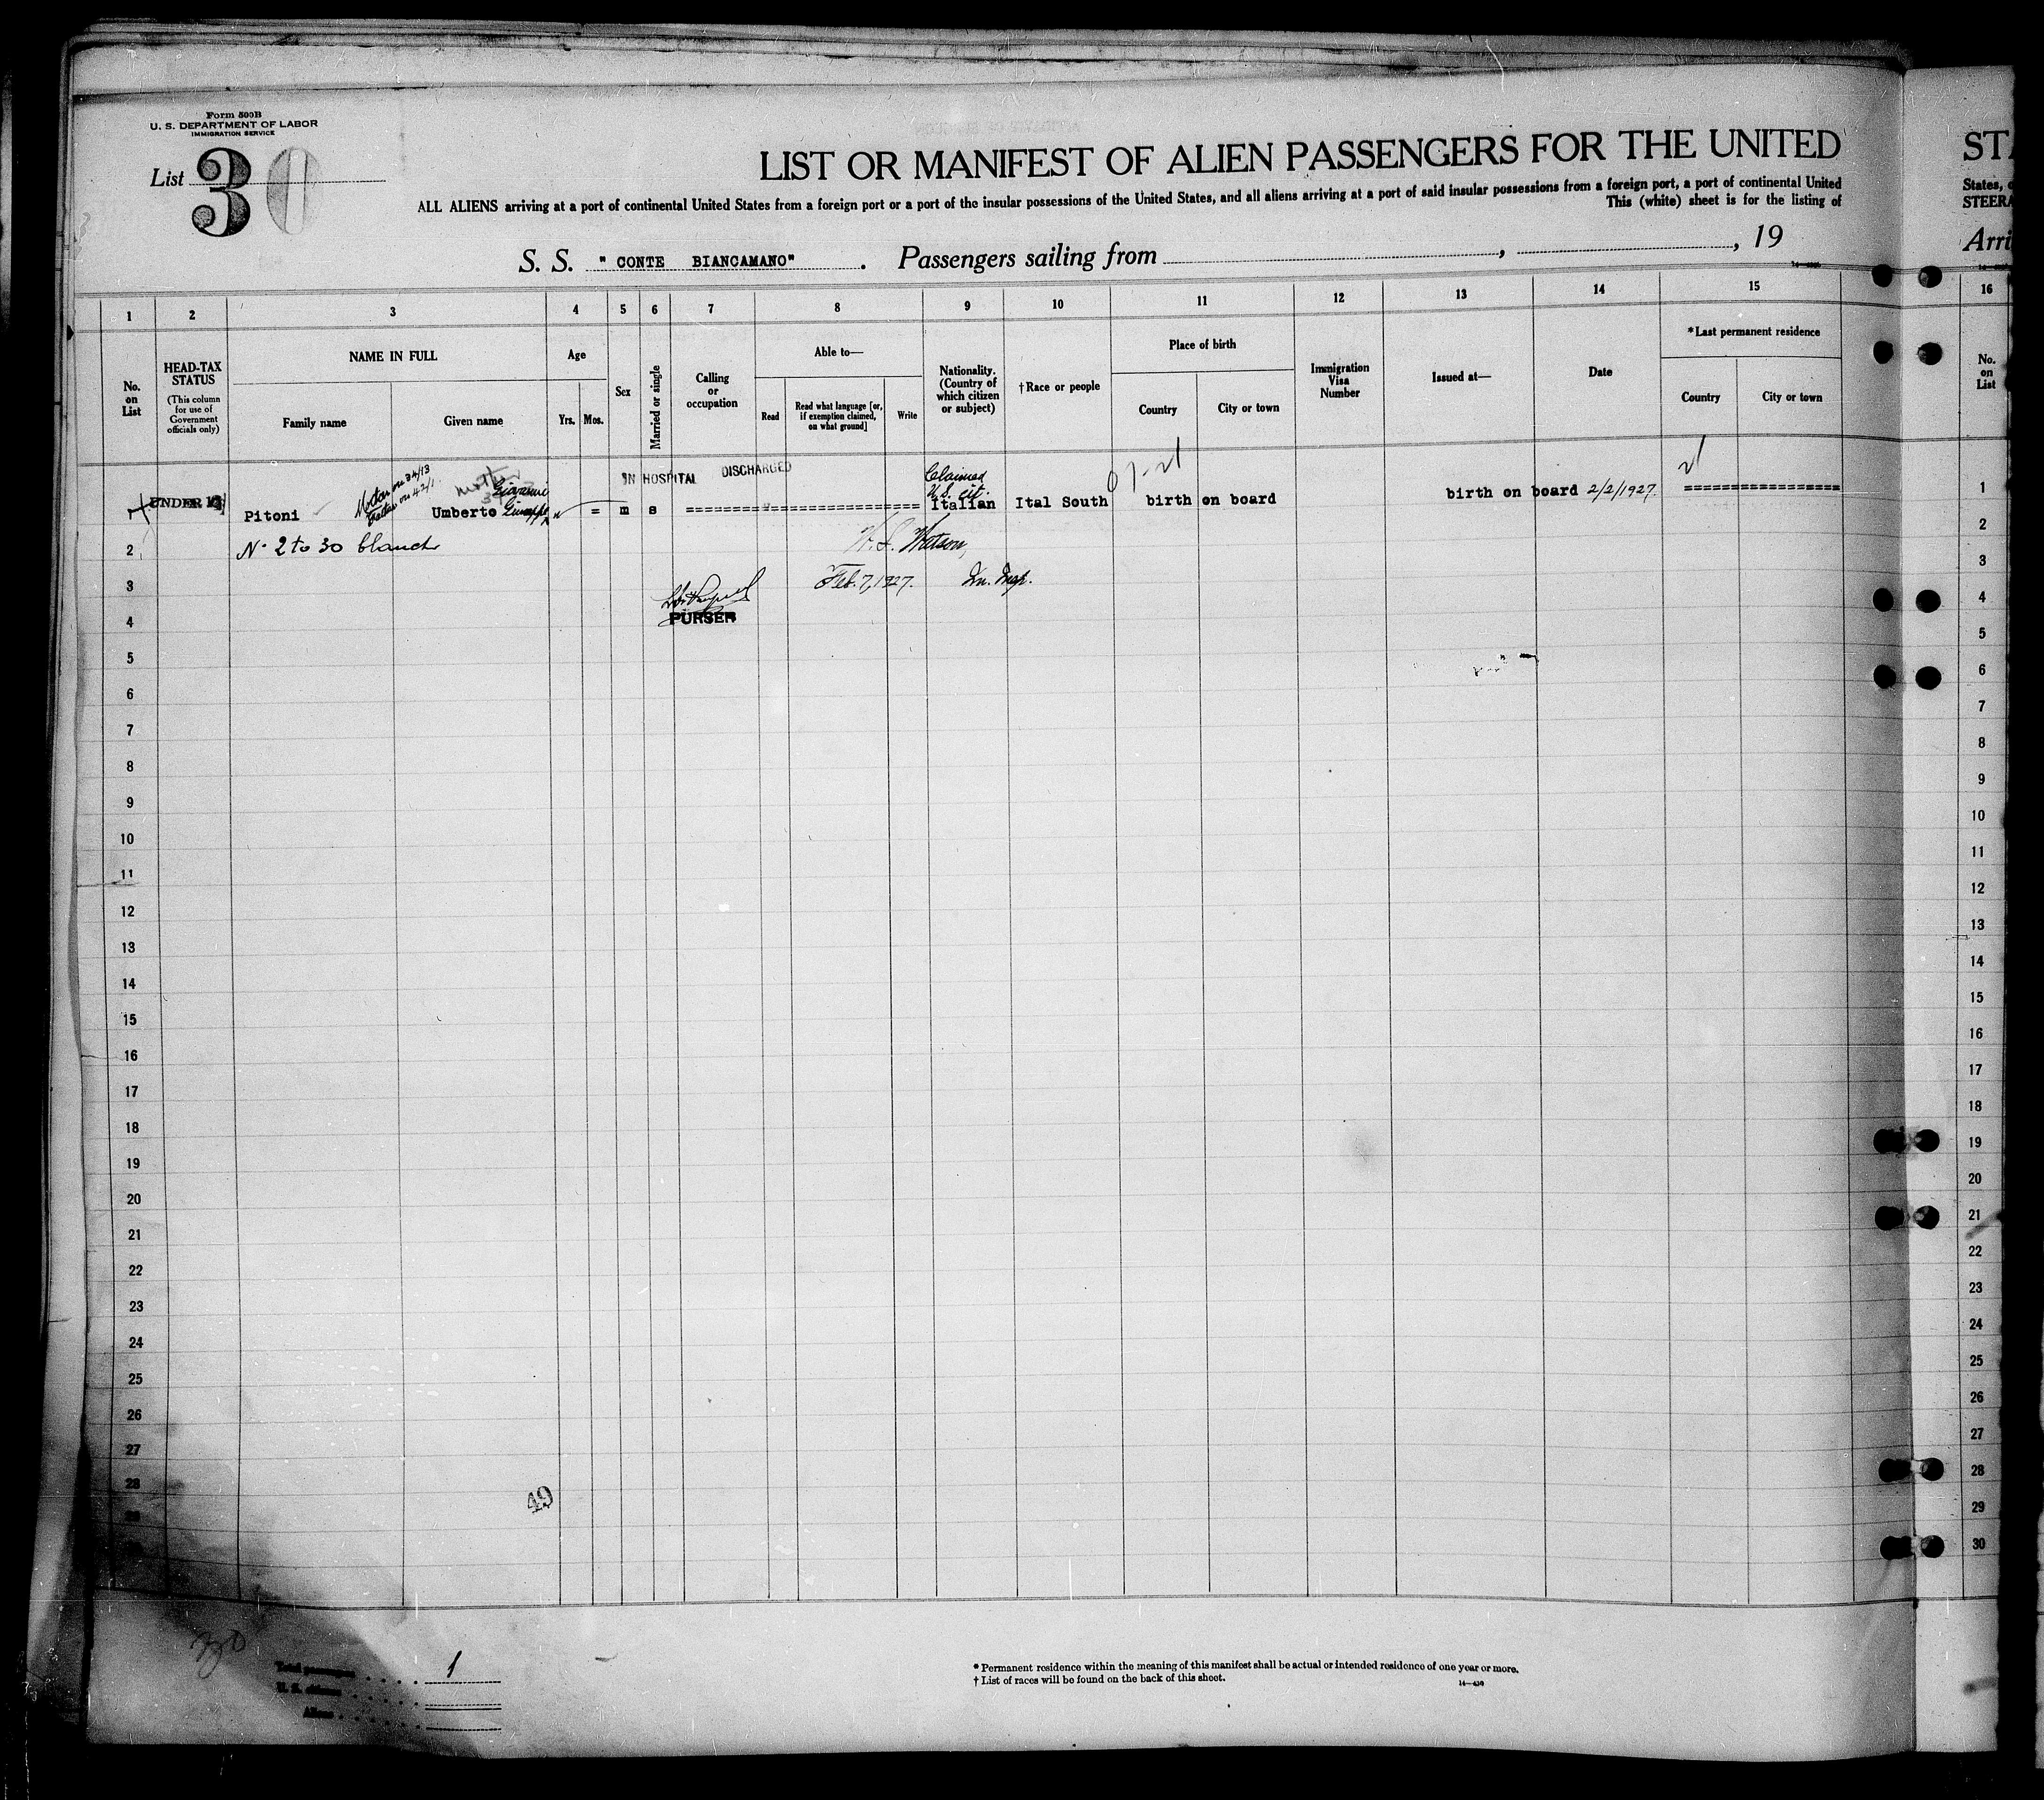 Form 500B
U. S. DEPARTMENT OF LABOR
IMMIGRATION SERVICE
List 30
LIST OR MANIFEST OF ALIEN PASSENGERS FOR THE UNITED
ALL ALIENS arriving at a port of continental United States from a foreign port or a port of the insular possessions of the United States, and all aliens arriving at a port of said insular possessions from a foreign port, a port of continental United
This (white) sheet is for the listing of
S. S. "CONTE BIANCAMANO". Passengers sailing from , , 19
STA
States, o
STEERA
Arri
1 2 3 4 5 6 7 8 9 10 11 12 13 14 15 16
No. on List
HEAD-TAX STATUS
(This column for use of Government officials only)
NAME IN FULL
Family name
Given name
Age
Yrs.
Mos.
Sex
Married or single
Calling or occupation
Able to—
Read
Read what language [or, if exemption claimed, on what ground]
Write
Nationality. (Country of which citizen or subject)
†Race or people
Place of birth
Country
City or town
Immigration Visa Number
Issued at—
Date
*Last permanent residence
Country
City or town
No. on List
Mother on 34/13
Father on 42/1
IN HOSPITAL DISCHARGED
Claimed
U.S. cit.
Giovanni
UNDER Pitoni Umberto Giuseppe = m s ==================== Italian Ital South birth on board birth on board 2/2/1927. ================ 1
2 No 2 to 30 blanch W. J. Watson, 2
3 Feb. 7, 1927. Im. Insp. 3
4 PURSER 4
5 5
6 6
7 7
8 8
9 9
10 10
11 11
12 12
13 13
14 14
15 15
16 16
17 17
18 18
19 19
20 20
21 21
22 22
23 23
24 24
25 25
26 26
27 27
28 49 28
29 29
30
30
Total passengers 1
U. S. citizens
Aliens
* Permanent residence within the meaning of this manifest shall be actual or intended residence of one year or more.
† List of races will be found on the back of this sheet.